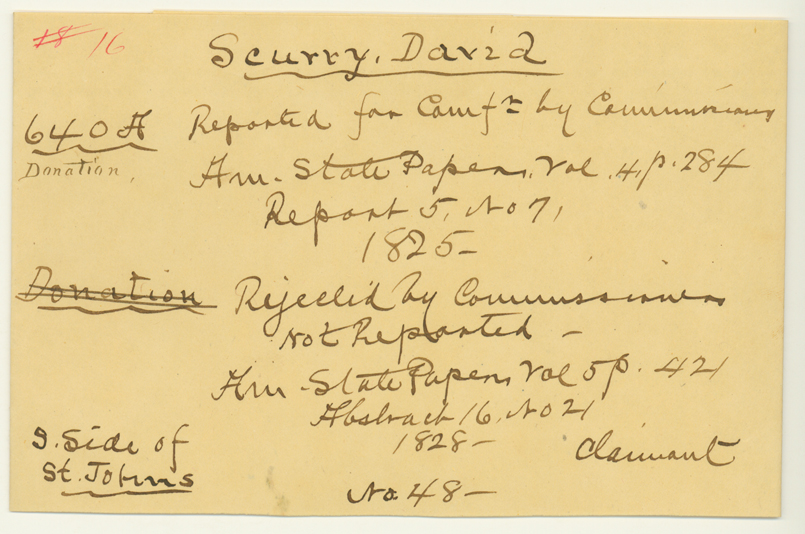 18 16
Scurry, David
640 A Reported for Comfr by Commissioners
Donation, Am. State Papers, Vol. 4, p. 284
Report 5, No 7,
1825-
Donation Rejected by Commissioners
Not Reported -
Am. State Papers, Vol 5 p. 421
Abstract 16, No 21
1828-
Side of Claimant
St. Johns
No 48-